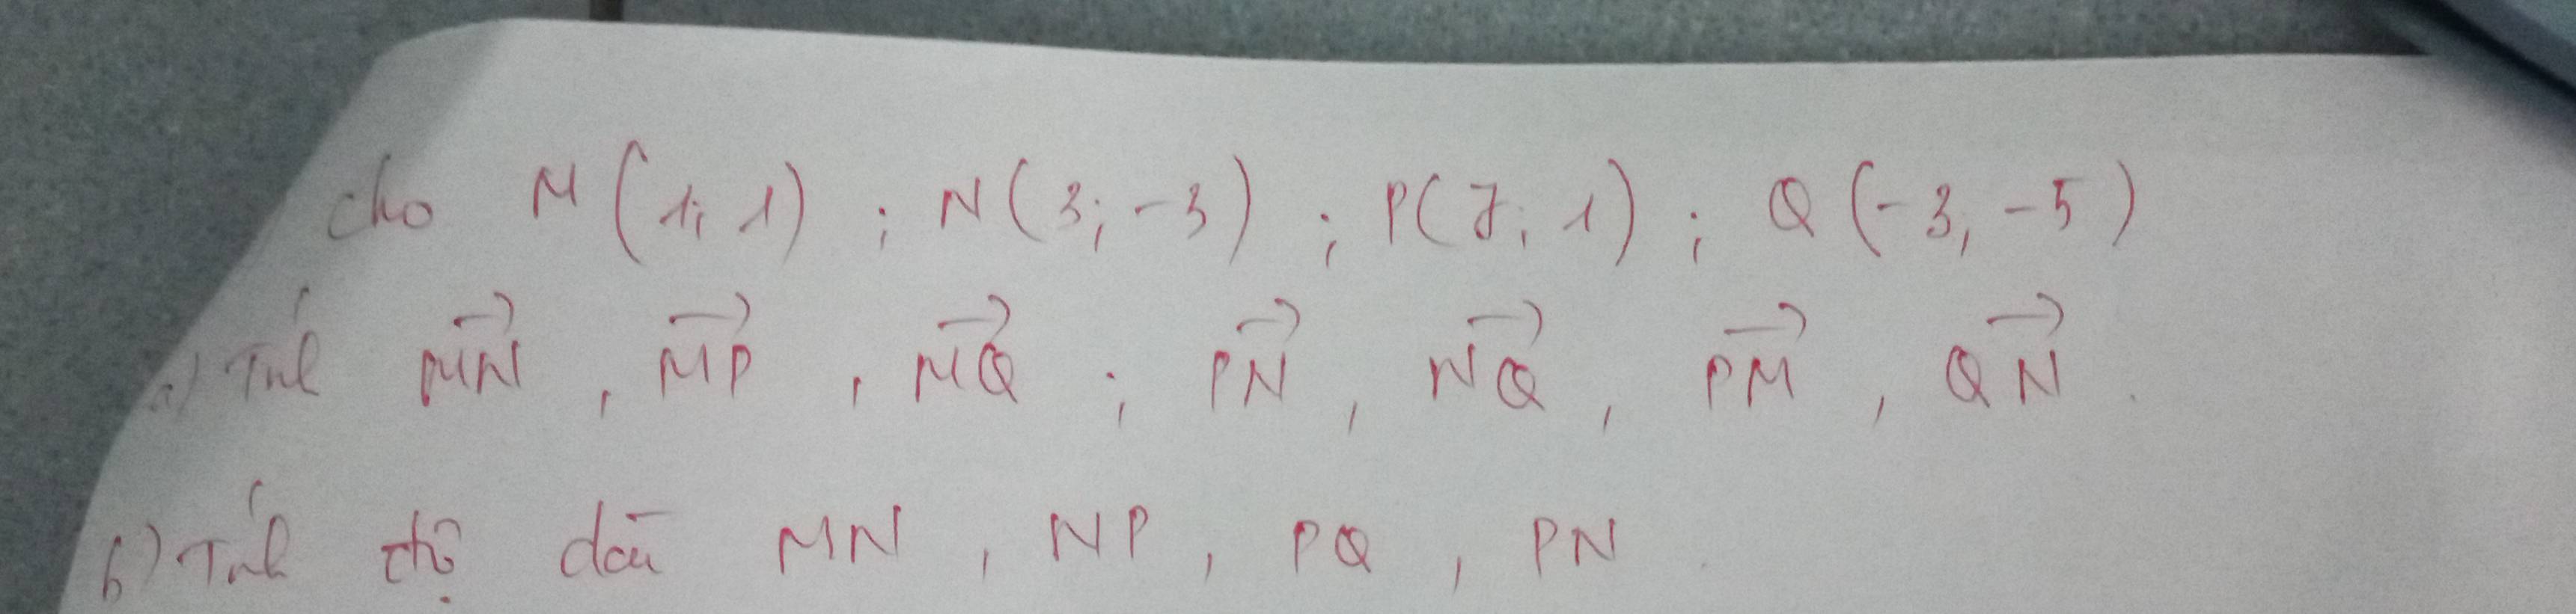 Cho M(1; 1) ; N(3; -3) ; P(7; 1) ; Q(-3; -5)
a) Tính \overrightarrow{MN} , \overrightarrow{MP} , \overrightarrow{MQ} ; \overrightarrow{PN} , \overrightarrow{NQ} , \overrightarrow{PM} , \overrightarrow{QN} .
b) Tính độ dài MN , NP , PQ , PN .